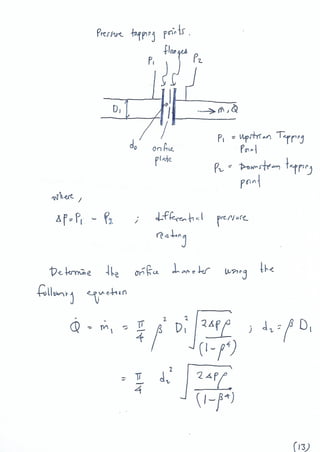 Pressure tapping points.
flanges
P₁ P₂
D₁ → ṁ, Q̇
d₀ orifice
plate
P₁ = Upstream Tapping
Point
P₂ = Downstream tapping
point
where,
ΔP = P₁ - P₂ ; differential pressure
reading
Determine the orifice diameter using the
following equation
Q̇ = ṁ₁ = π/4 β² D₁² √(2ΔPρ/(1-β⁴)) ; d₂ = β D₁
= π/4 d₂² √(2ΔPρ/(1-β⁴))
(13)